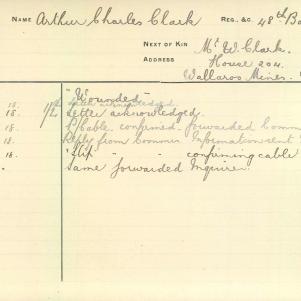 NAME Arthur Charles Clark REG. &c. 48th Ba
NEXT OF KIN Mr W. Clark.
ADDRESS House 204.
Wallaroo Mines.
"Wounded"
18. Letter acknowledged.
18. Letter acknowledged.
18. P/Cable confirmed. forwarded Comm
18. Reply from Commn Information sent
18. "Slip" " " confirming cable
Same forwarded Inquirer.